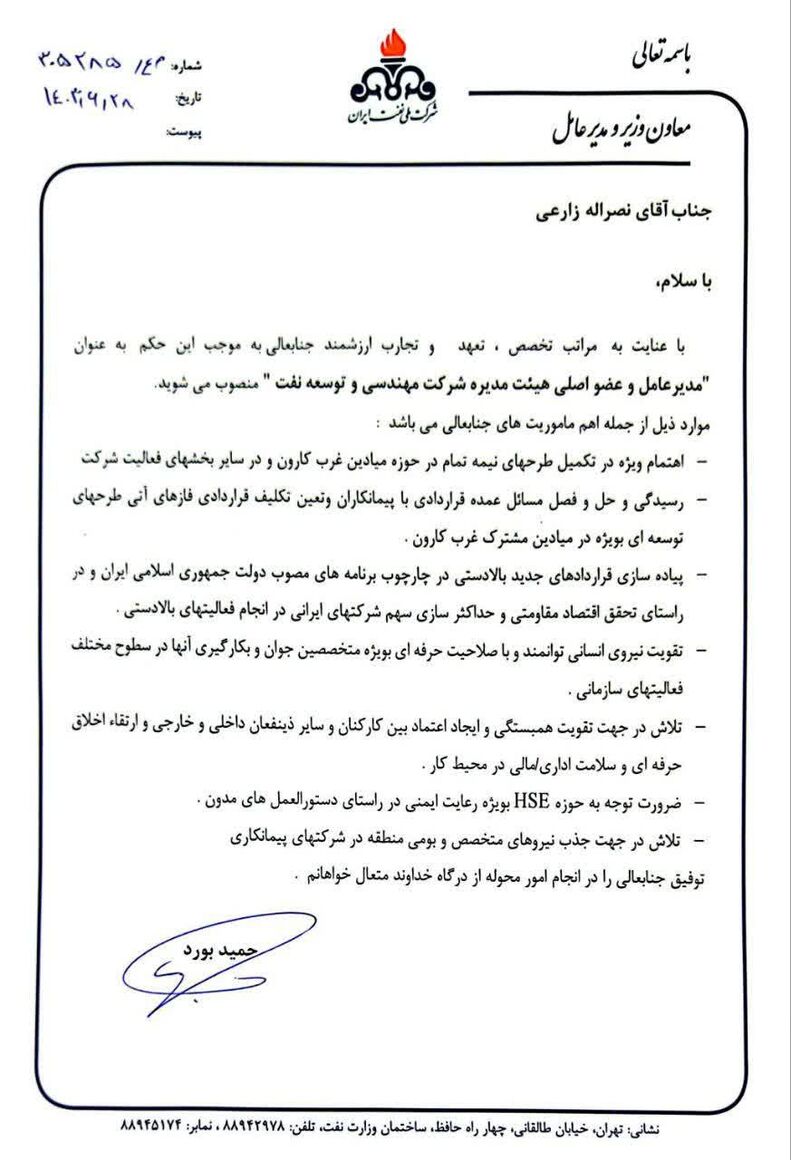 باسمه تعالی
معاون وزیر و مدیر عامل
شرکت ملی نفت ایران
شماره: ۱۴۳/ ۳۰۵۲۸۵
تاریخ: ۱۴۰۳,۶,۲۸
پیوست:
جناب آقای نصراله زارعی
با سلام،
با عنایت به مراتب تخصص ، تعهد و تجارب ارزشمند جنابعالی به موجب این حکم به عنوان
"مدیرعامل و عضو اصلی هیئت مدیره شرکت مهندسی و توسعه نفت " منصوب می شوید.
موارد ذیل از جمله اهم ماموریت های جنابعالی می باشد :
– اهتمام ویژه در تکمیل طرحهای نیمه تمام در حوزه میادین غرب کارون و در سایر بخشهای فعالیت شرکت
– رسیدگی و حل و فصل مسائل عمده قراردادی با پیمانکاران وتعین تکلیف قراردادی فازهای آتی طرحهای
توسعه ای بویژه در میادین مشترک غرب کارون .
– پیاده سازی قراردادهای جدید بالادستی در چارچوب برنامه های مصوب دولت جمهوری اسلامی ایران و در
راستای تحقق اقتصاد مقاومتی و حداکثر سازی سهم شرکتهای ایرانی در انجام فعالیتهای بالادستی .
– تقویت نیروی انسانی توانمند و با صلاحیت حرفه ای بویژه متخصصین جوان و بکارگیری آنها در سطوح مختلف
فعالیتهای سازمانی .
– تلاش در جهت تقویت همبستگی و ایجاد اعتماد بین کارکنان و سایر ذینفعان داخلی و خارجی و ارتقاء اخلاق
حرفه ای و سلامت اداری/مالی در محیط کار .
– ضرورت توجه به حوزه HSE بویژه رعایت ایمنی در راستای دستورالعمل های مدون .
– تلاش در جهت جذب نیروهای متخصص و بومی منطقه در شرکتهای پیمانکاری
توفیق جنابعالی را در انجام امور محوله از درگاه خداوند متعال خواهانم .
حمید بورد
نشانی: تهران، خیابان طالقانی، چهار راه حافظ، ساختمان وزارت نفت، تلفن: ۸۸۹۴۲۹۷۸ ، نمابر: ۸۸۹۴۵۱۷۴